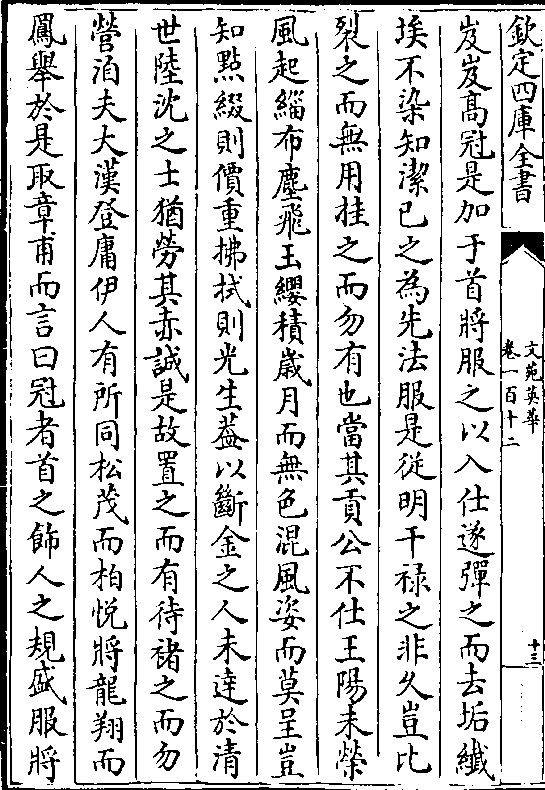 欽定四庫全書
文苑英華
卷一百十二
十三
岌岌高冠是加于首將服之以入仕遂彈之而去垢纎
埃不染知潔已之為先法服是從明干禄之非久豈比
裂之而無用挂之而勿有也當其貢公不仕王陽未榮
風起緇布塵飛玉纓積歲月而無色混風姿而莫呈豈
知點綴則價重拂拭則光生葢以斷金之人未達於清
世陸沈之士猶勞其赤誠是故置之而有待褚之而勿
營洎夫大漢登庸伊人有所同松茂而柏悦將龍翔而
鳳舉於是取章甫而言曰冠者首之飾人之規盛服將